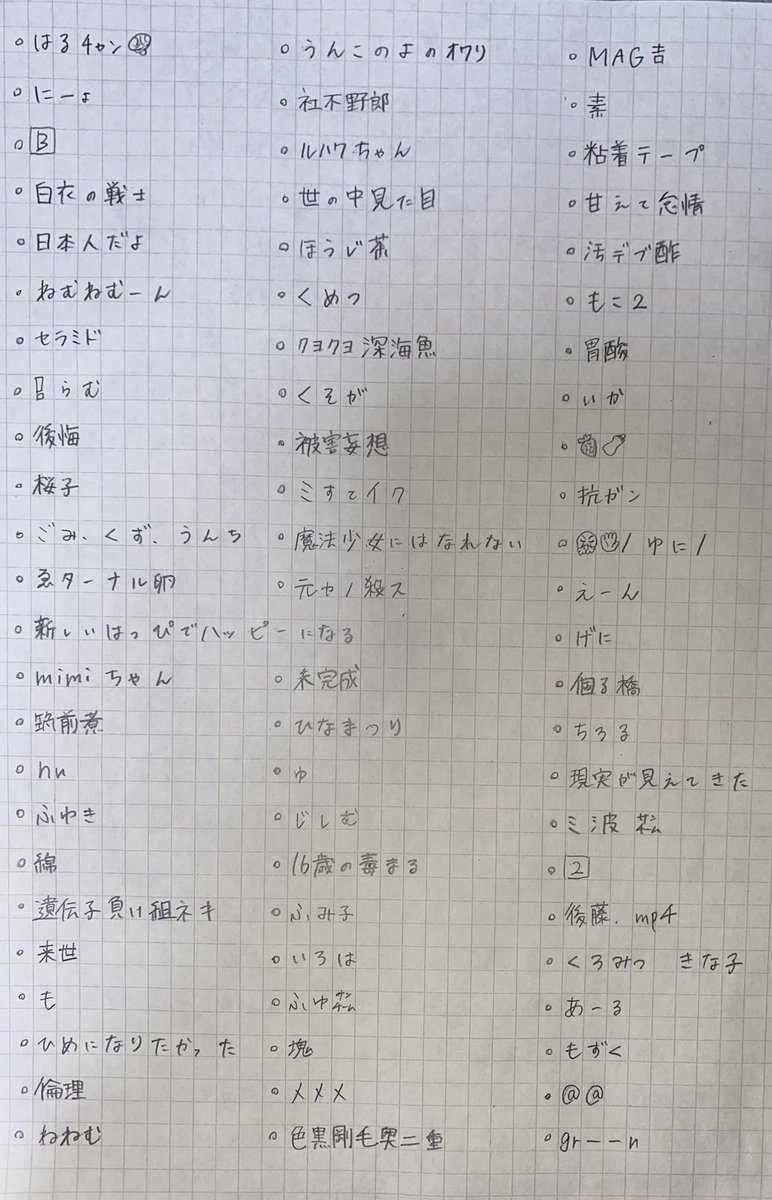 はるチャン
にーょ
B
白衣の戦士
日本人だよ
ねむねむーん
セラミド
らむ
後悔
桜子
ごみ、くず、うんち
ゑターナル卵
新しいはっぴでハッピーになる
mimiちゃん
筑前煮
hu
ふゆき
綿
遺伝子負け組ネキ
来世
も
ひめになりたかった
倫理
ねねむ
うんこのよのオワリ
社不野郎
ルハワちゃん
世の中見た目
ほうじ茶
くめつ
クヨクヨ深海魚
くそが
被害妄想
ミすてイク
魔法少女にはなれない
元セノ殺ス
未完成
ひなまつり
ゆ
じしむ
16歳の毒まる
ふみ子
いろは
ふゆ
塊
メメメ
色黒剛毛奥二重
MAG吉
素
粘着テープ
甘えて怠情
汚デブ酢
もこ2
胃酸
いか
抗ガン
/ ゆに /
えーん
げに
個る橋
ちろる
現実が見えてきた
ミ波
2
後藤.mp4
くろみつ きな子
あーる
もずく
@@
gr——n